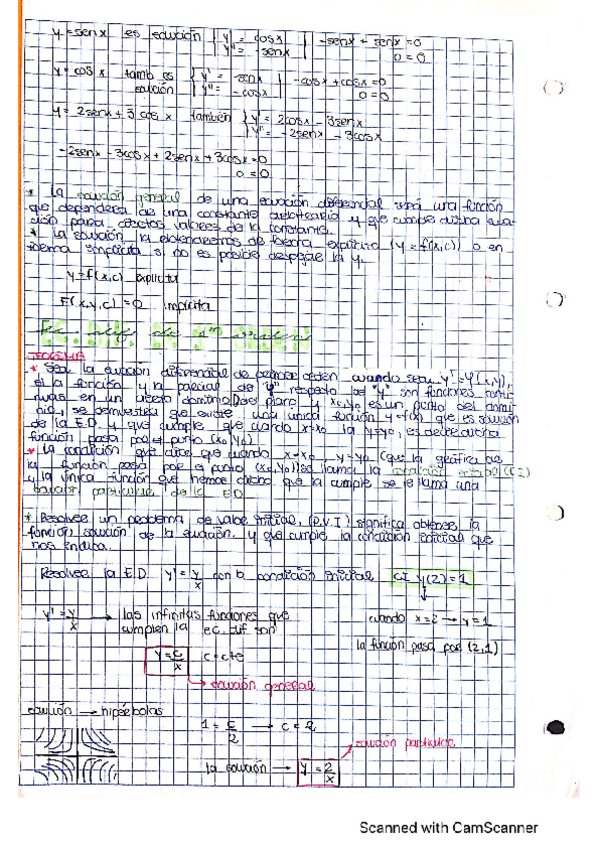 y = senx es solución { y' = cosx
y'' = -senx } -senx + senx = 0
0 = 0
y = cos x tamb es solución { y' = -senx
y'' = -cosx } -cosx + cosx = 0
0 = 0
y = 2senx + 3 cos x también { y' = 2cosx - 3senx
y'' = -2senx - 3cosx
-2senx - 3cosx + 2senx + 3cosx = 0
0 = 0
* La solución general de una ecuación diferencial será una función
que dependerá de una constante arbitraria y que cumple dicha ecua-
ción para ciertos valores de la constante.
* La solución la obtendremos de forma explícita (y = f(x,c)) o en
forma implícita si no es posible despejar la y.
y = f(x,c) explícita
F(x,y,c) = 0 implícita
Ec. Dif. de 1er orden
TEOREMA
* Sea la ecuación diferencial de primer orden cuando sea y' = f(x,y),
si la función y la parcial de "f" respecto de "y" son funciones conti-
nuas en un cierto dominio D del plano y x₀,y₀ es un punto del domi-
nio, se demuestra que existe una única función y = f(x) que es solución
de la E.D. y que cumple que cuando x=x₀ la y=y₀, es decir dicha
función pasa por el punto (x₀,y₀)
* La condición que dice que cuando x=x₀, y=y₀ (que la gráfica de
la función pasa por el punto (x₀,y₀)) se llama la condición inicial (CI)
y la única función que hemos dicho que la cumple se le llama una
solución particular de la E.D.
* Resolver un problema de valor inicial, (P.V.I) significa obtener la
función solución de la ecuación y que cumple la condición inicial que
nos indica.
Resolver la E.D. y' = y/x con la condición inicial CI y(2) = 1
y' = y/x → las infinitas funciones que
cumplen la ec. dif son
cuando x=2 → y=1
la función pasa por (2,1)
y = c/x c = cte
→ solución general
solución → hipérbolas
1 = c/2 → c = 2
solución particular
la solución → y = 2/x
Scanned with CamScanner